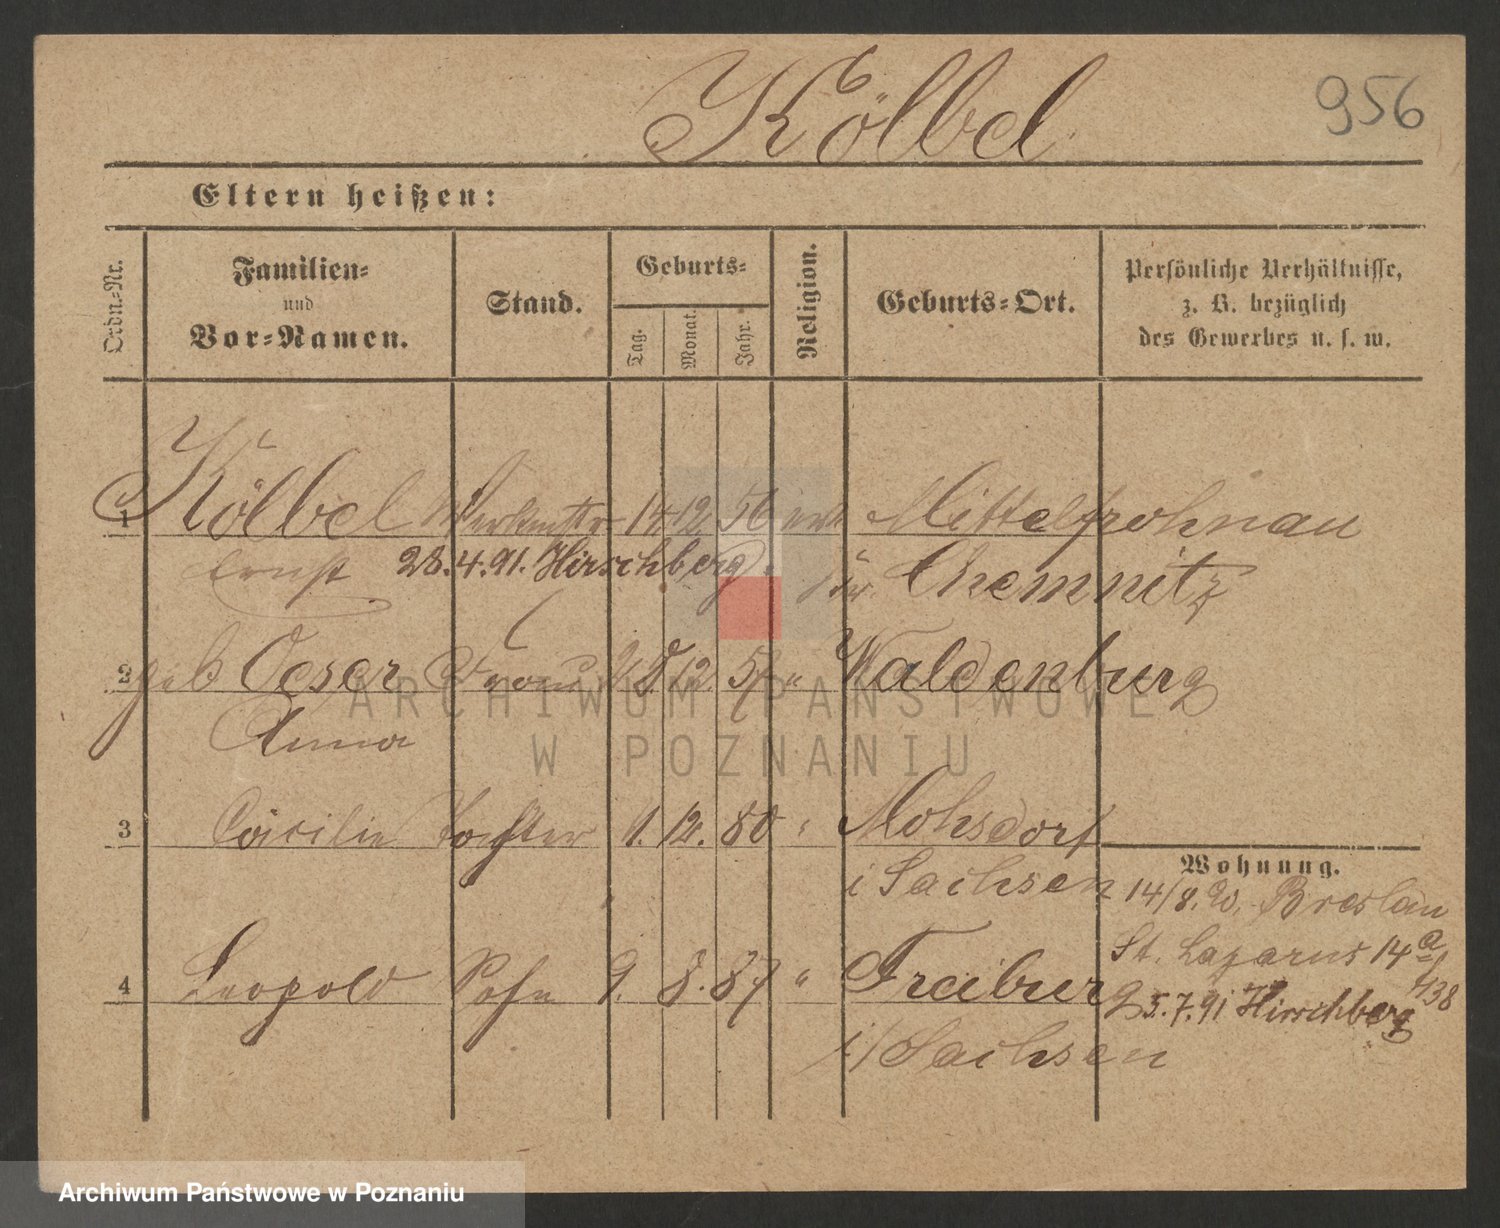 Kölbel
956
Eltern heißen:
Ordn.-Nr.
Familien-
und
Vor-Namen.
Stand.
Geburts-
Tag.
Monat.
Jahr.
Religion.
Geburts-Ort.
Persönliche Verhältnisse,
z. B. bezüglich
des Gewerbes u. s. w.
1 Kölbel Werkmstr 14 12 56 Mittelfrohnau
Ernst 28.4.91. Hirschberg Chemnitz
2 geb Oeser Frau 12. 57 " Waldenburg
Anna
3 Cäcilie Tochter 1. 12. 80 " Mohsdorf
i Sachsen
Wohnung.
14/8. 90. Breslau
St. Lazarus 14a/438
4 Leopold Sohn 9. 8. 87 " Freiburg
5.7.91 Hirschberg
i/Sachsen
ARCHIWUM PAŃSTWOWE
W POZNANIU
Archiwum Państwowe w Poznaniu